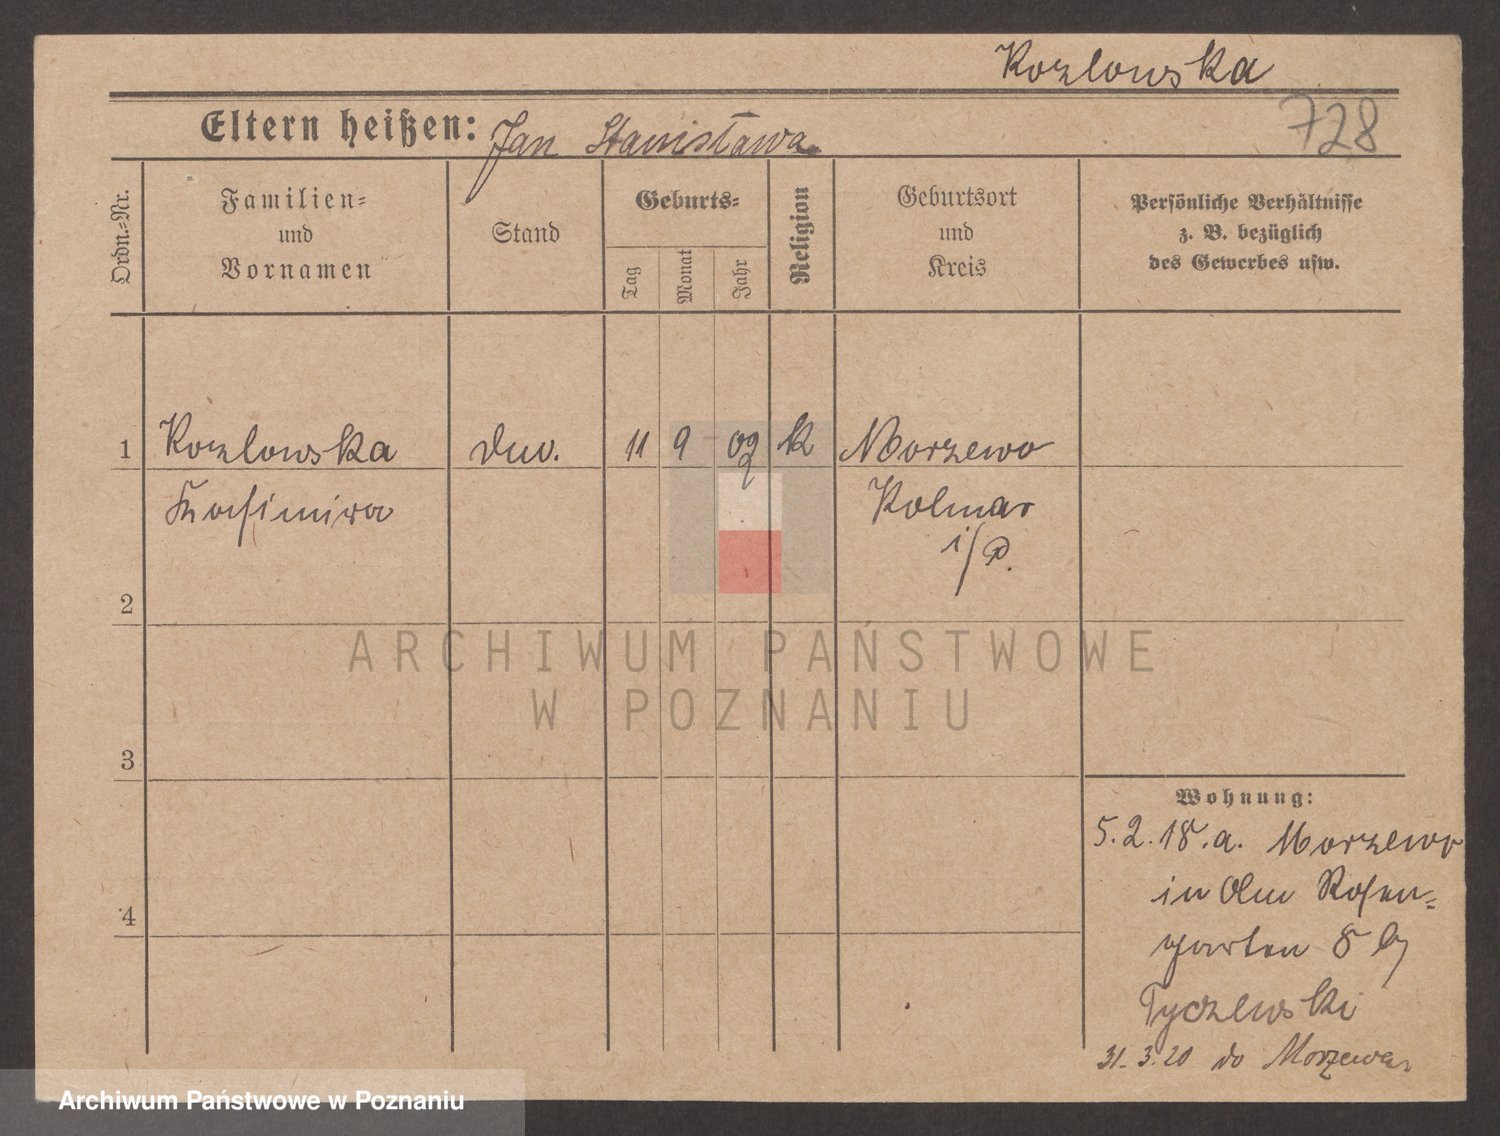 Kozlowska
728
Eltern heißen: Jan Stanisława
Ordn.-Nr.
Familien-
und
Vornamen
Stand
Geburts-
Tag
Monat
Jahr
Religion
Geburtsort
und
Kreis
Persönliche Verhältnisse
z. B. bezüglich
des Gewerbes usw.
1 Kozlowska 11 9 09 k Morzewo
Kasimira Kolmar
i/P.
2
ARCHIWUM PAŃSTWOWE
W POZNANIU
3
Wohnung:
5.2.18. a. Morzewo
in Rosen-
4
garten 8 b/
Tyczewski
31.3.20 do Morzewa
Archiwum Państwowe w Poznaniu